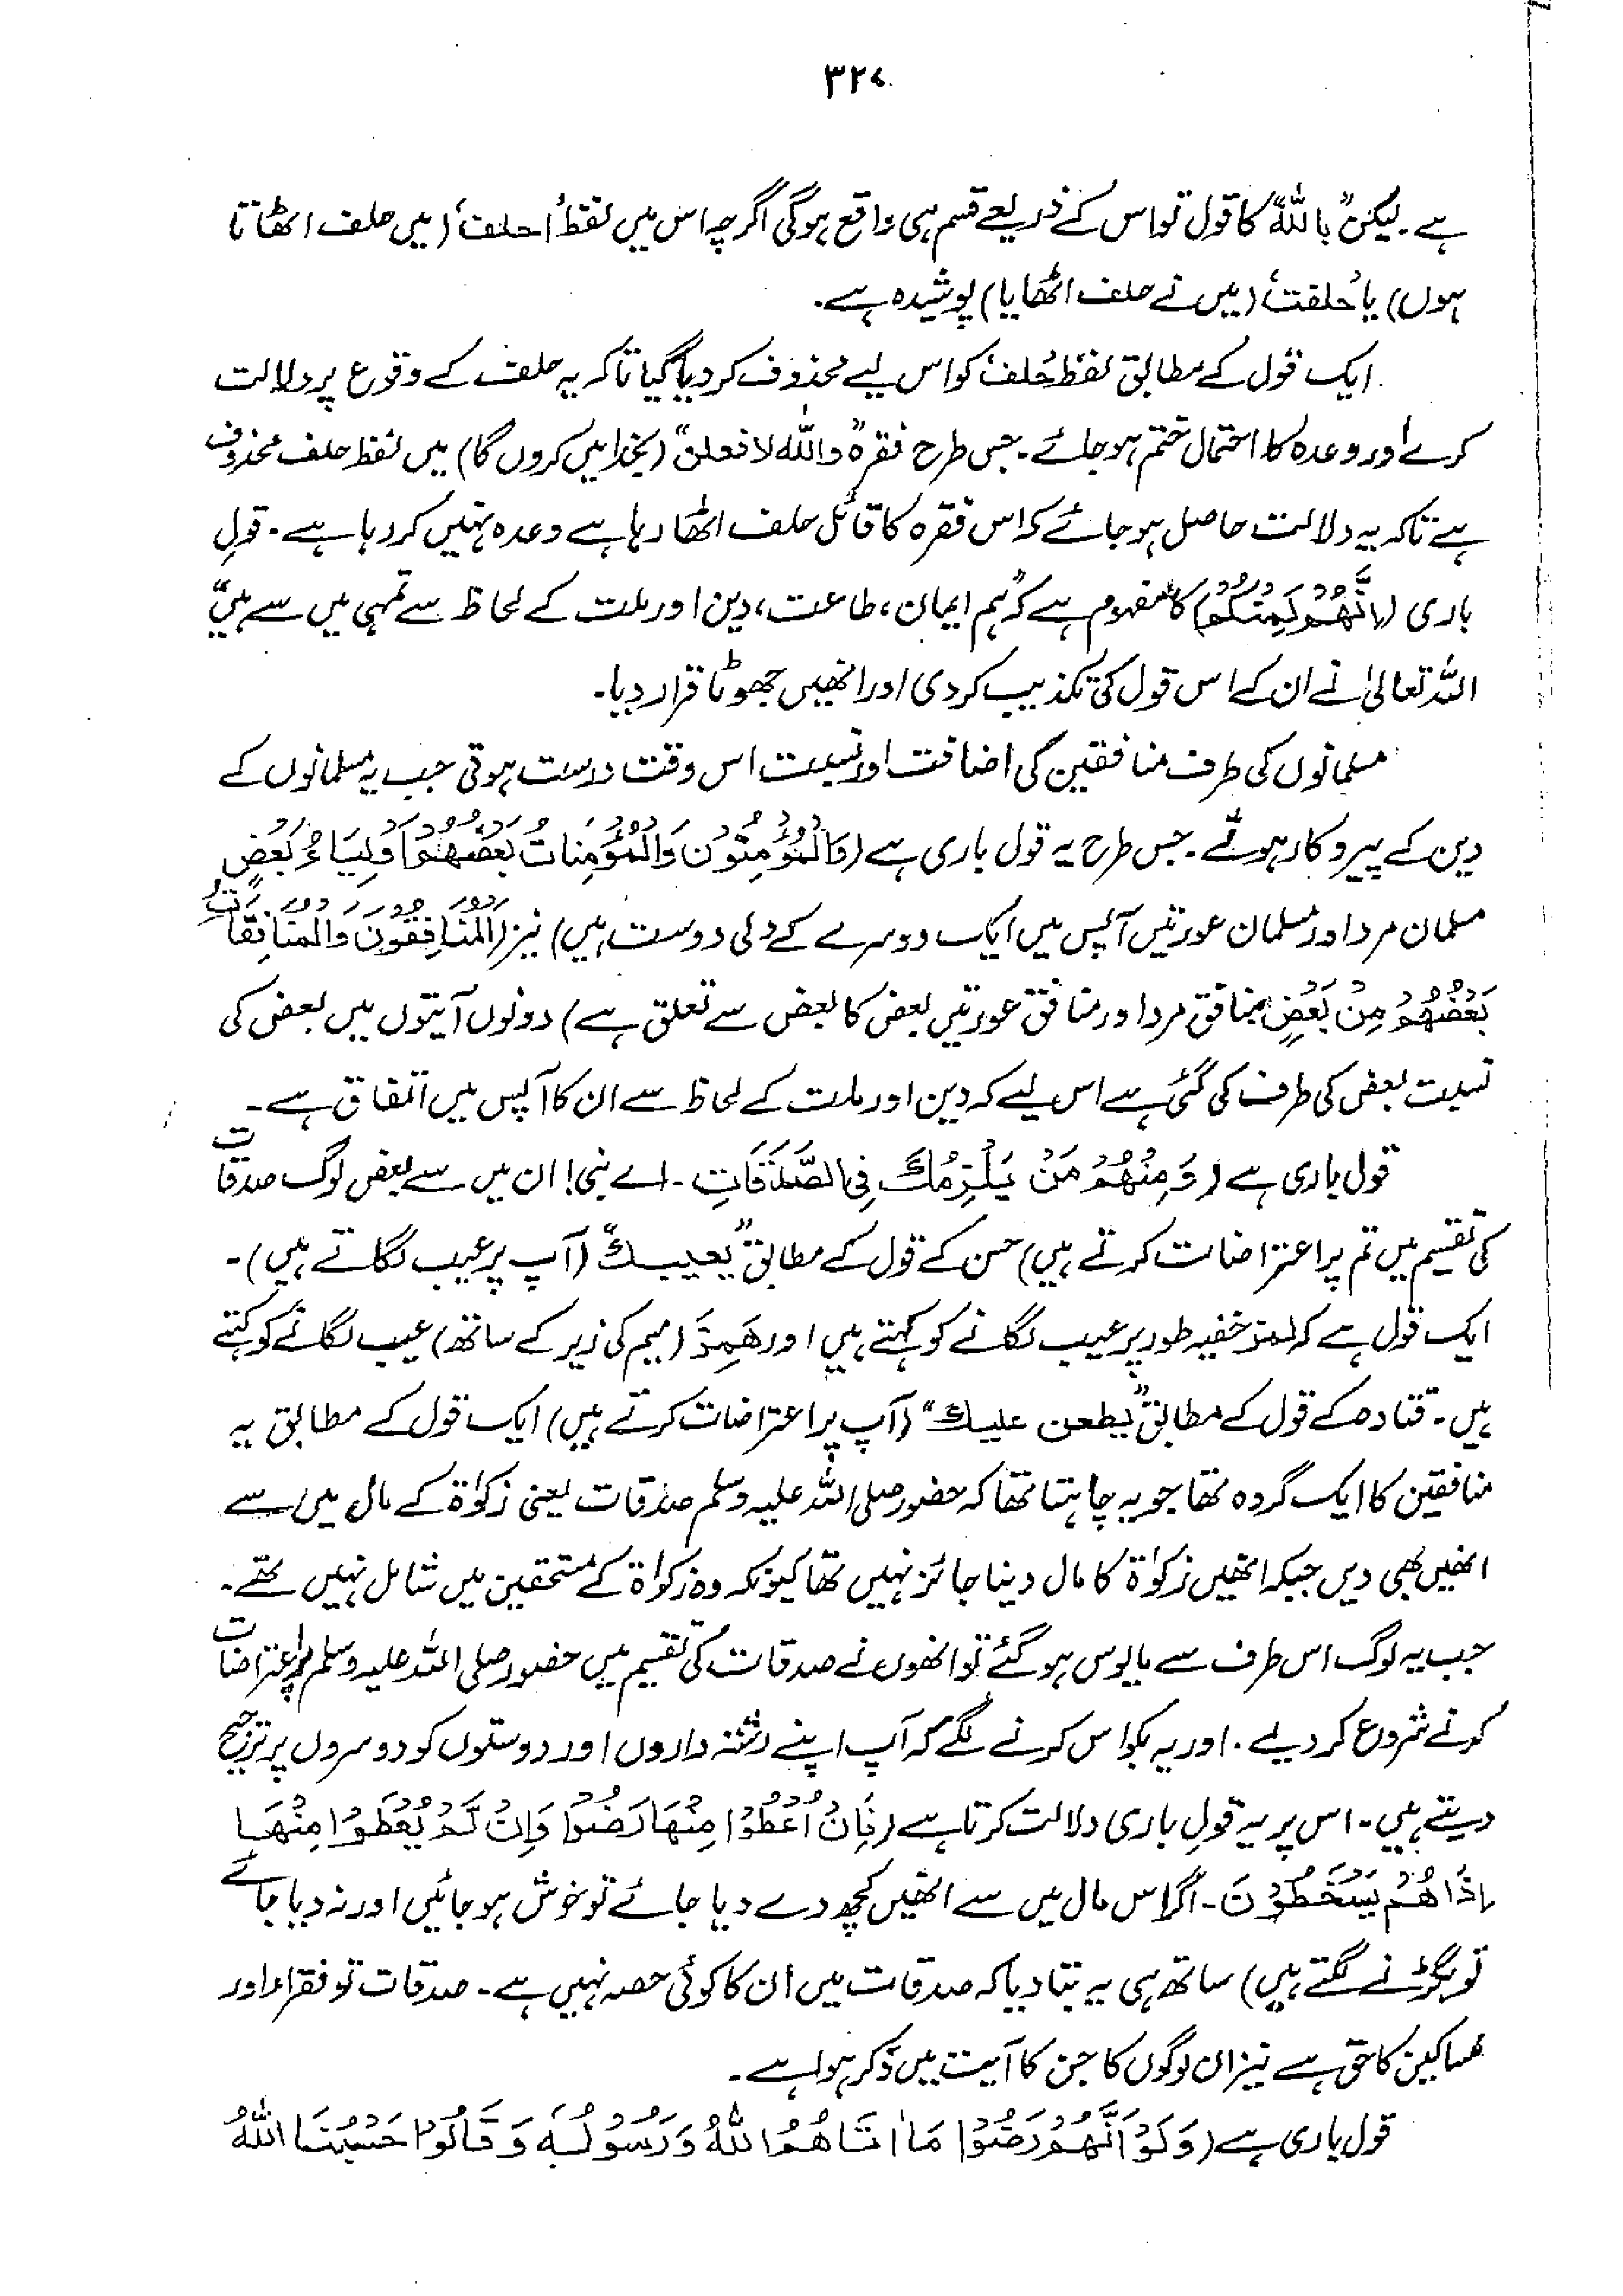 ۳۲۷
ہے۔ لیکن "باللہ" کا قول تو اس کے ذریعے قسم ہی واقع ہوگی اگرچہ اس میں لفظ 'احلف' (میں حلف اٹھاتا
ہوں) یا 'حلفت' (میں نے حلف اٹھایا) پوشیدہ ہے۔
ایک قول کے مطابق لفظ 'حلف' کو اس لیے محذوف کردیا گیا تاکہ یہ حلف کے وقوع پر دلالت
کرے اور وعدہ کا احتمال ختم ہوجائے۔ جس طرح فقرہ "واللہ لافعلن" (بخدا میں کروں گا) میں لفظ حلف محذوف
ہے تاکہ یہ دلالت حاصل ہوجائے کہ اس فقرہ کا قائل حلف اٹھا رہا ہے وعدہ نہیں کر رہا ہے۔ قول
باری (اِنَّھُمْ لَمِنْکُمْ) کا مفہوم ہے کہ "ہم ایمان، طاعت، دین اور ملت کے لحاظ سے تمہی میں سے ہیں"
اللہ تعالیٰ نے ان کے اس قول کی تکذیب کردی اور انھیں جھوٹا قرار دیا۔
مسلمانوں کی طرف منافقین کی اضافت اور نسبت اس وقت درست ہوتی جب یہ مسلمانوں کے
دین کے پیروکار ہوتے۔ جس طرح یہ قول باری ہے (وَالْمُؤْمِنُوْنَ وَالْمُؤْمِنَاتُ بَعْضُھُمْ اَوْلِیَاءُ بَعْضٍ
مسلمان مرد اور مسلمان عورتیں آپس میں ایک دوسرے کے دلی دوست ہیں) نیز (اَلْمُنَافِقُوْنَ وَالْمُنَافِقَاتُ
بَعْضُھُمْ مِنْ بَعْضٍ منافق مرد اور منافق عورتیں بعض کا بعض سے تعلق ہے) دونوں آیتوں میں بعض کی
نسبت بعض کی طرف کی گئی ہے اس لیے کہ دین اور ملت کے لحاظ سے ان کا آپس میں اتفاق ہے۔
قول باری ہے (وَمِنْھُمْ مَنْ یَلْمِزُکَ فِی الصَّدَقَاتِ۔ اے نبی! ان میں سے بعض لوگ صدقات
کی تقسیم میں تم پر اعتراضات کرتے ہیں) حسن کے قول کے مطابق "یعیبک" (آپ پر عیب لگاتے ہیں)۔
ایک قول ہے کہ لمز خفیہ طور پر عیب لگانے کو کہتے ہیں اور ھَمِزَ (میم کی زیر کے ساتھ) عیب لگانے کو کہتے
ہیں۔ قتادہ کے قول کے مطابق "یطعن علیک" (آپ پر اعتراضات کرتے ہیں) ایک قول کے مطابق یہ
منافقین کا ایک گروہ تھا جو یہ چاہتا تھا کہ حضور صلی اللہ علیہ وسلم صدقات یعنی زکوٰۃ کے مال میں سے
انھیں بھی دیں جبکہ انھیں زکوٰۃ کا مال دینا جائز نہیں تھا کیونکہ وہ زکوٰۃ کے مستحقین میں شامل نہیں تھے۔
جب یہ لوگ اس طرف سے مایوس ہوگئے تو انھوں نے صدقات کی تقسیم میں حضور صلی اللہ علیہ وسلم پر اعتراضات
کرنے شروع کردیے۔ اور یہ بکواس کرنے لگے کہ آپ اپنے رشتہ داروں اور دوستوں کو دوسروں پر ترجیح
دیتے ہیں۔ اس پر یہ قول باری دلالت کرتا ہے (فَاِنْ اُعْطُوْا مِنْھَا رَضُوْا وَاِنْ لَّمْ یُعْطَوْا مِنْھَا
اِذَا ھُمْ یَسْخَطُوْنَ۔ اگر اس مال میں سے انھیں کچھ دے دیا جائے تو خوش ہوجائیں اور نہ دیا جائے
تو بگڑنے لگتے ہیں) ساتھ ہی یہ بتا دیا کہ صدقات میں ان کا کوئی حصہ نہیں ہے۔ صدقات تو فقراء اور
مساکین کا حق ہے نیز ان لوگوں کا جن کا آیت میں ذکر ہوا ہے۔
قول باری ہے (وَلَوْ اَنَّھُمْ رَضُوْا مَا اٰتَاھُمُ اللہُ وَرَسُوْلُہٗ وَقَالُوْا حَسْبُنَا اللہُ